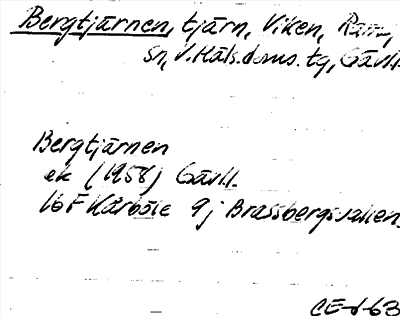 Bergtjärnen, tjärn, Viken, Ramsj
sn, V. Häls. doms. tg, Gävl.
Bergtjärnen
ek (1958) Gävl.
16 F Kårböle 9j Brassbergsvallen
CE-d-63